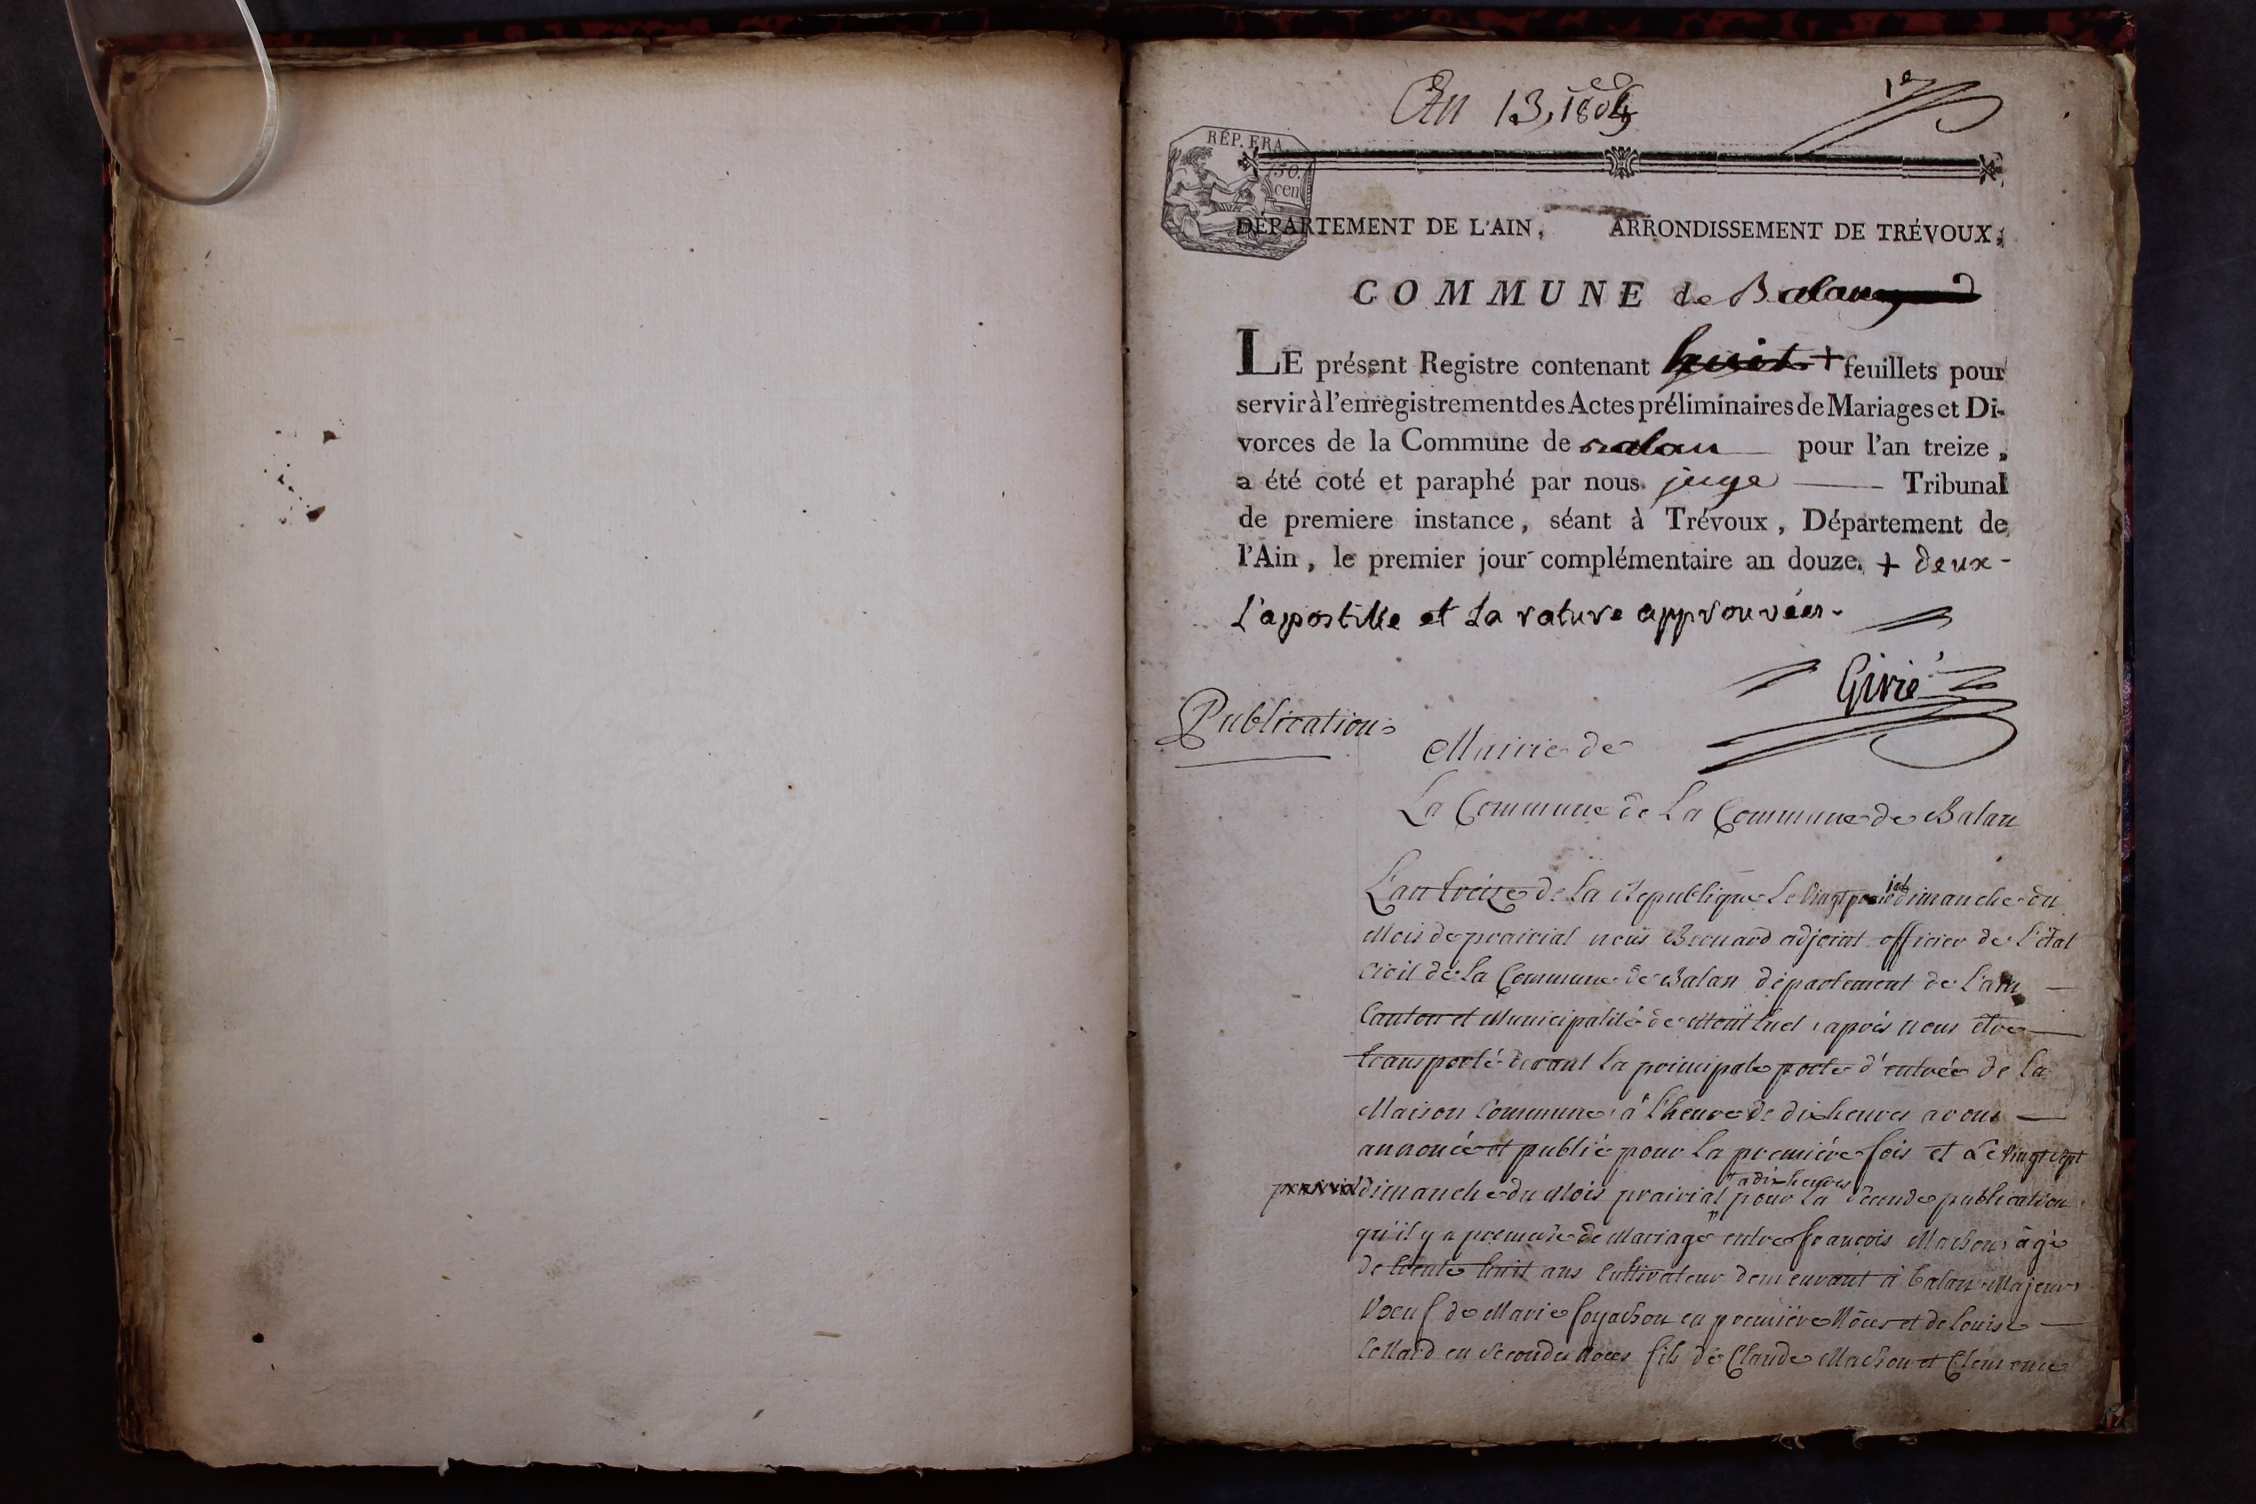 An 13, 1805
1er
RÉP. FRA.
50.
cen
DÉPARTEMENT DE L'AIN, ARRONDISSEMENT DE TRÉVOUX,
COMMUNE de Balan
LE présent Registre contenant huit + feuillets pour
servir à l'enregistrement des Actes préliminaires de Mariages et Di-
vorces de la Commune de Balan pour l'an treize,
a été coté et paraphé par nous juge Tribunal
de premiere instance, séant à Trévoux, Département de
l'Ain, le premier jour complémentaire an douze. + deux -
L'apostille et la rature approuvées -
Girié
Publication
Mairie de
La Commune de La Commune de Balan
L'an treize de la Republique Le Vingt dimanche du
Mois de prairial nous Brouard adjoint officier de L'état
Civil de La Commune de Balan département de L'ain
Canton et Municipalité de Montluel, après nous être
transporté devant La principale porte d'entrée de la
Maison Commune, à L'heure de dix heures avons
annoncé et publié pour La première fois et Le Vingt sept
dimanche du Mois prairial à dix heures pour La seconde publication
qu'il y a promesse de Mariage entre françois Machon âgé
de trente huit ans Cultivateur demeurant à Balan Majeur
Voeuf de Marie en première Nôces et de Louise
Collard en Secondes Noces fils de Claude Machon et Clemence